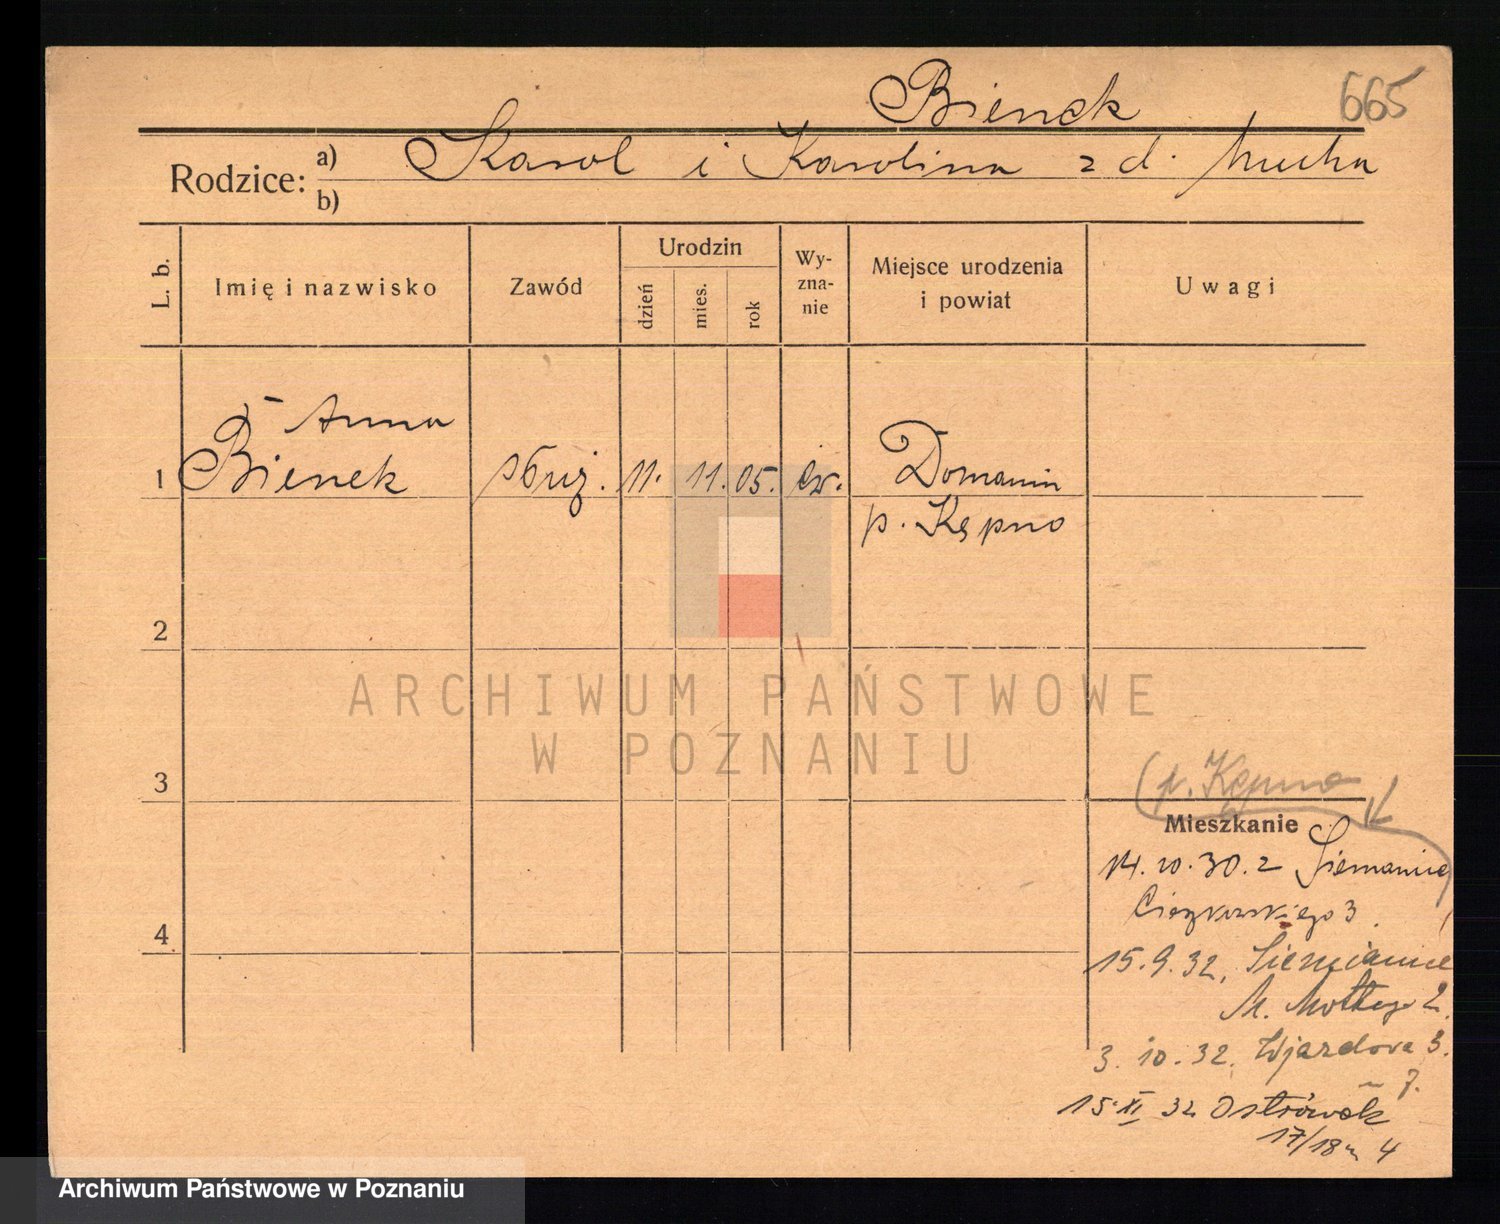 Bienek
665
Rodzice: a) Karol i Karolina z d. Mucha
b)
L. b.
Imię i nazwisko
Zawód
Urodzin
dzień
mies.
rok
Wy-
zna-
nie
Miejsce urodzenia
i powiat
Uwagi
Anna
1 Bienek służ. 11. 11. 05. ew. Domanin
p. Kępno
2
3
4
ARCHIWUM PAŃSTWOWE
W POZNANIU
(p. Kępno
Mieszkanie
14.10.30. z Siemianice
3
15.9.32, Siemianice
M. Mottego 2.
3.10.32. Wjazdova 3.
m 7.
15.XI 32 Ostrówek
17/18 m 4
Archiwum Państwowe w Poznaniu